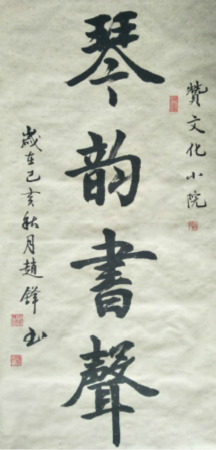 赞文化小院
琴韵書聲
歲在己亥秋月趙鋒书